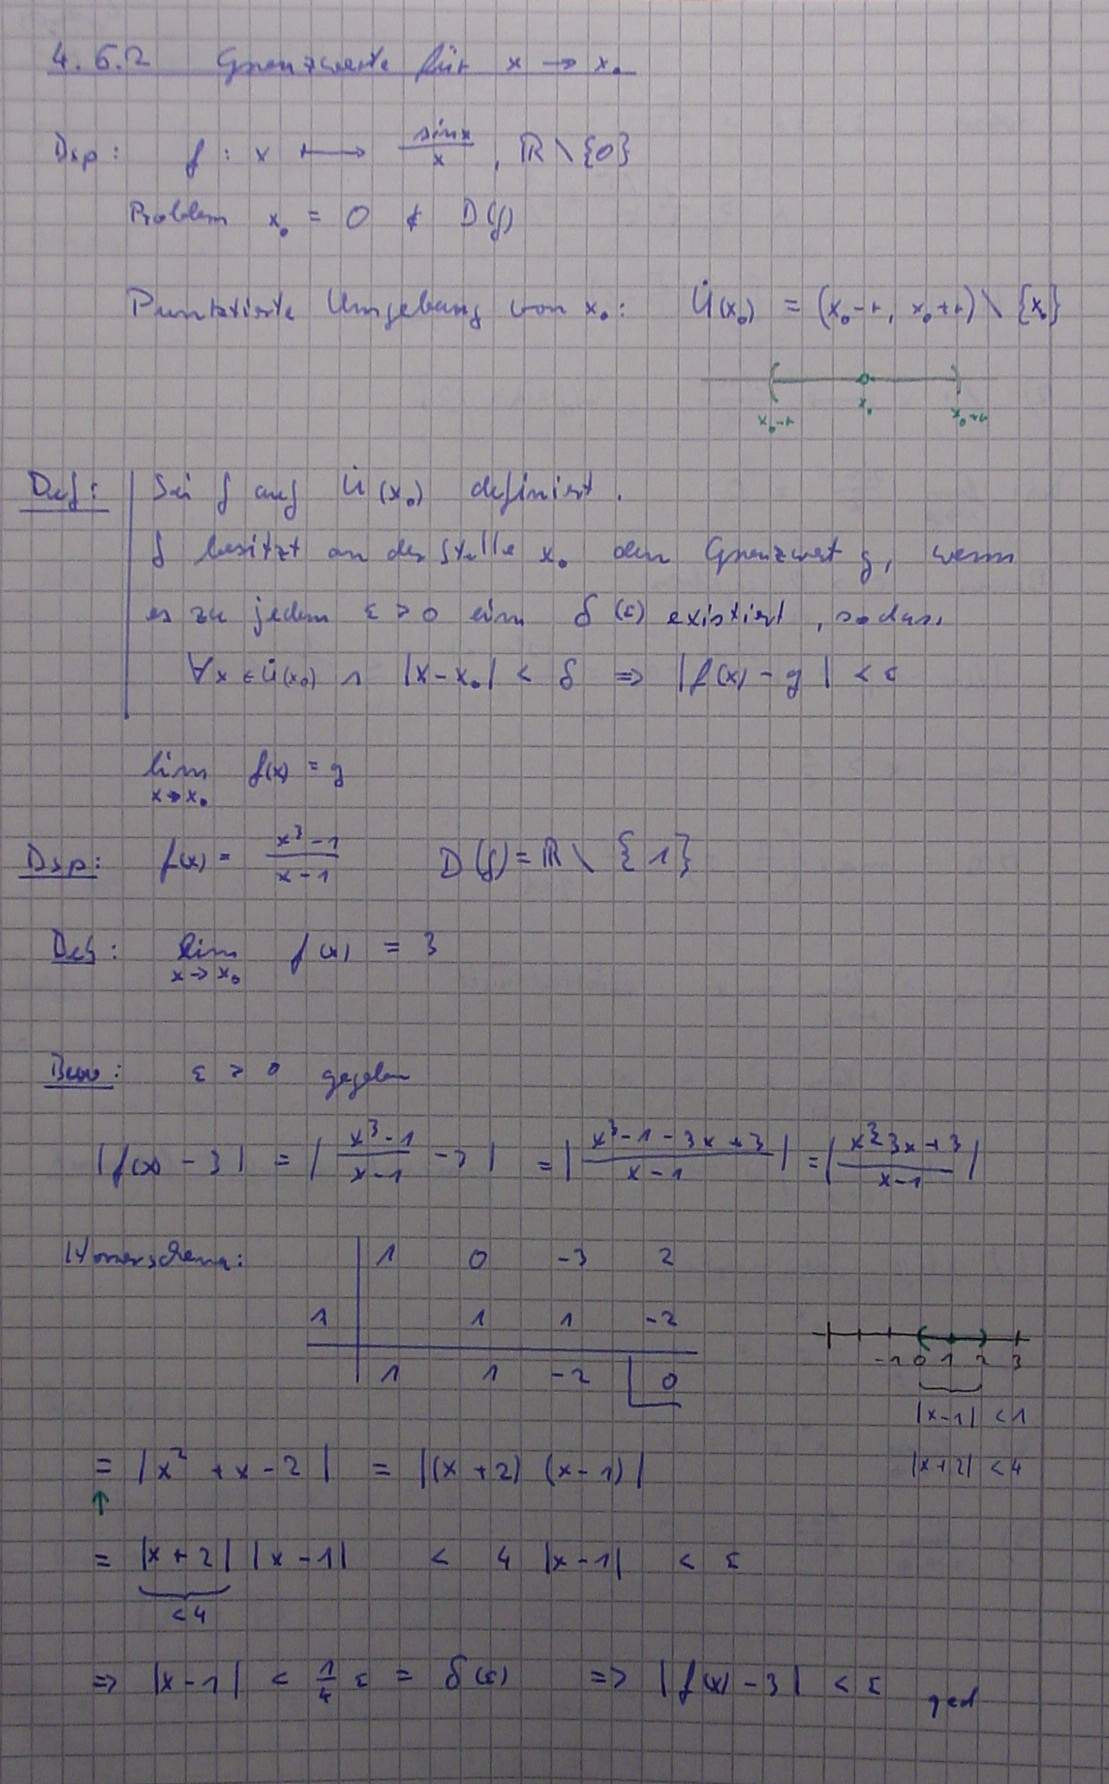 4.6.2 Grenzwerte für x → x₀
Bsp: f : x ⟼ sinx/x , ℝ \ {0}
Problem x₀ = 0 ∉ D(f)
Punktierte Umgebung von x₀: U̇(x₀) = (x₀-r, x₀+r) \ {x₀}
x₀-r x₀ x₀+r
Def: Sei f auf U̇(x₀) definiert.
f besitzt an der Stelle x₀ den Grenzwert g, wenn
es zu jedem ε > 0 ein δ(ε) existiert, sodass
∀x ∈ U̇(x₀) ∧ |x-x₀| < δ ⇒ |f(x) - g| < ε
lim x→x₀ f(x) = g
Bsp: f(x) = (x³-1)/(x-1) D(f) = ℝ \ {1}
Beh: lim x→x₀ f(x) = 3
Bew: ε > 0 gegeben
|f(x) - 3| = |(x³-1)/(x-1) - 3| = |(x³-1-3x+3)/(x-1)| = |(x³3x+3)/(x-1)|
Hornerschema: 1 0 -3 2
1 1 1 -2
1 1 -2 0
-1 0 1 2 3
|x-1| < 1
= |x² + x - 2| = |(x+2) (x-1)|
|x+2| < 4
= |x+2| |x-1| < 4 |x-1| < ε
< 4
⇒ |x-1| < 1/4 ε = δ(ε) ⇒ |f(x) - 3| < ε qed